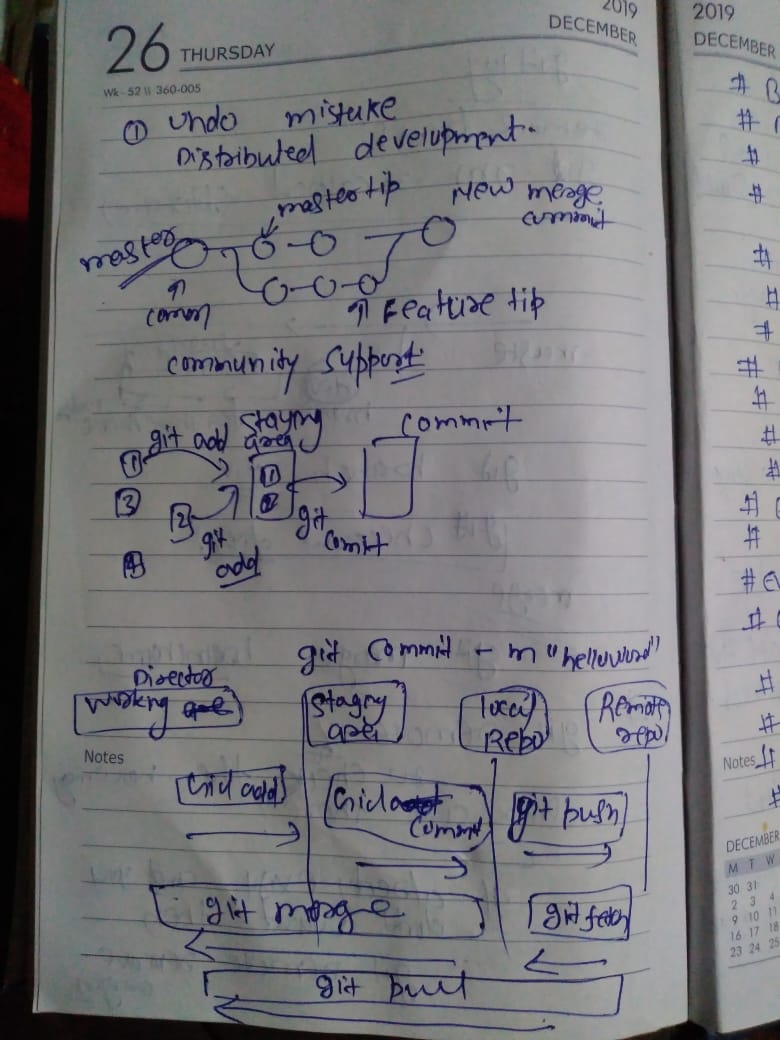 2019
DECEMBER
26 THURSDAY
Wk - 52 \\ 360-005
① Undo mistake
Distributed development.
master tip
New merge
commit
master
common
Feature tip
community support
git add
Staging
area
commit
1
3
2
1
2
git
add
git
commit
4
git commit - m "hello word"
Director
Working
Staging
area
local
Repo
Remote
repo
Notes
Gid add
Gid
commit
git push
git merge
git fetch
git pull
2019
DECEMBER
# B
#
#
#
#
#
#
#
#
#
#
#
#
# E
#
#
#
Notes #
#
DECEMBER
M T W
30 31
2 3 4
9 10 11
16 17 18
23 24 25